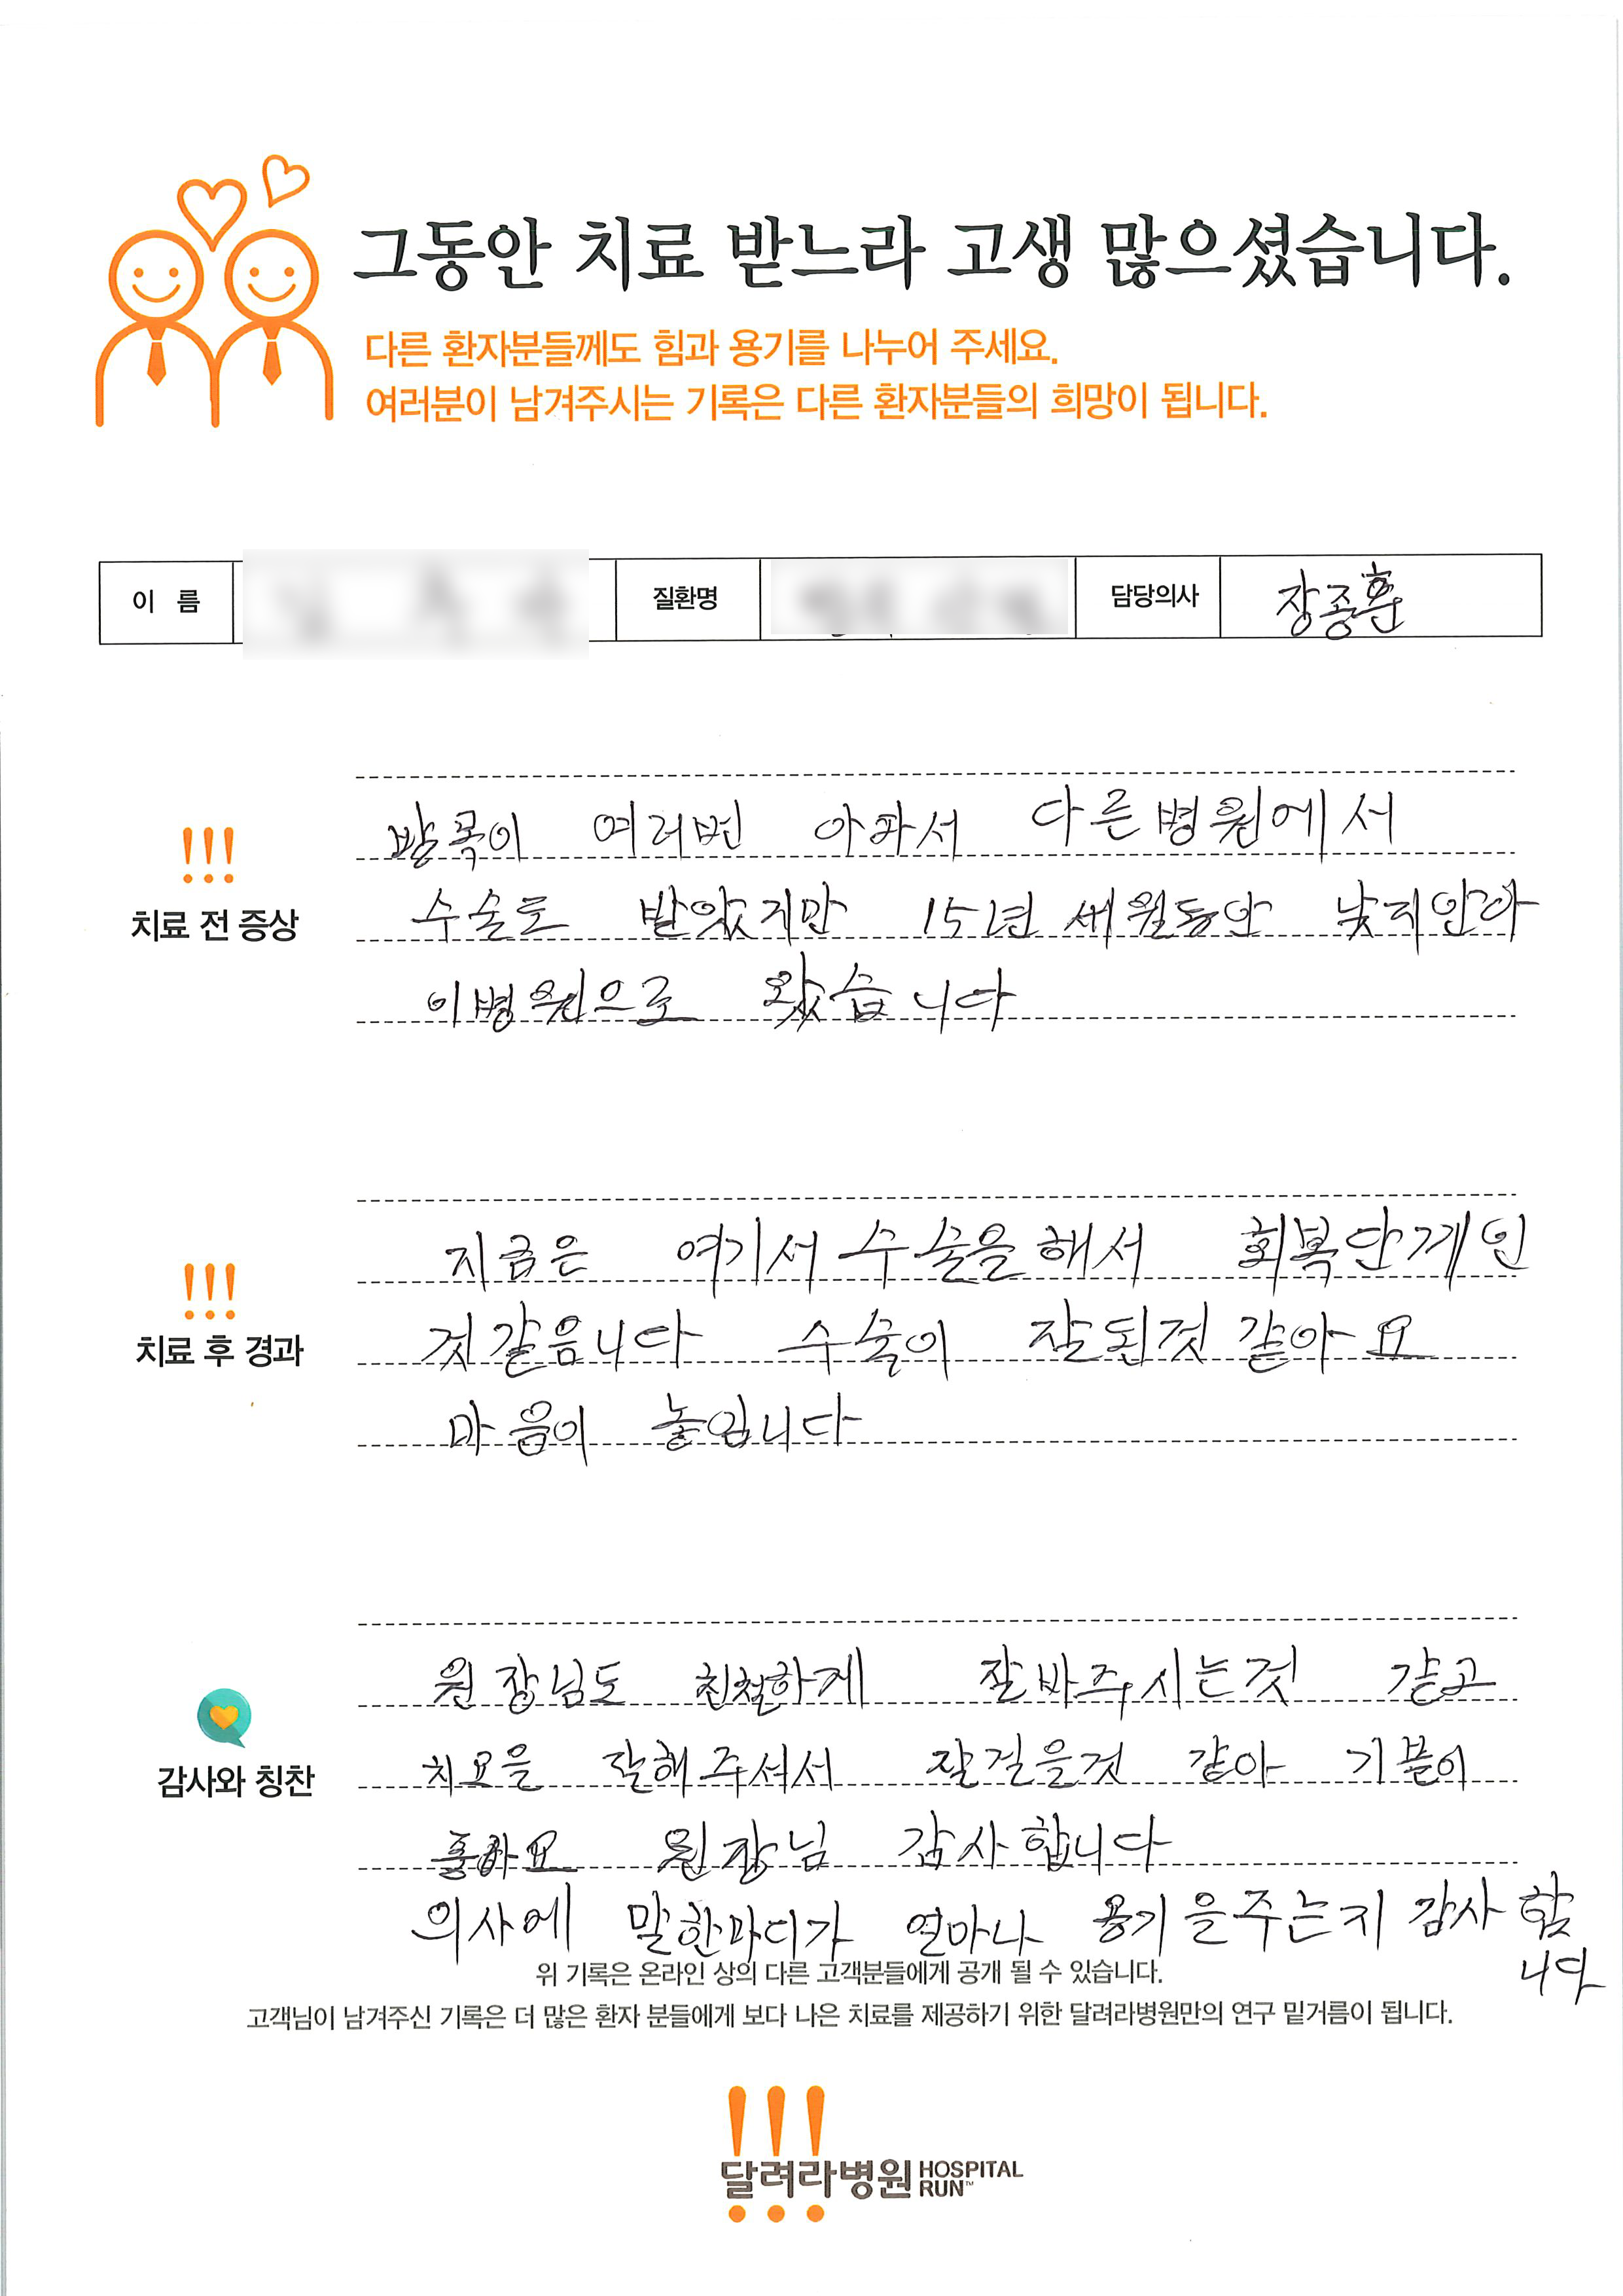 그동안 치료 받느라 고생 많으셨습니다.
다른 환자분들께도 힘과 용기를 나누어 주세요.
여러분이 남겨주시는 기록은 다른 환자분들의 희망이 됩니다.
이 름 질환명 담당의사 장종훈
치료 전 증상
발목이 여러번 아파서 다른병원에서
수술도 받았지만 15년 세월동안 낮지안아
이병원으로 왔습니다
치료 후 경과
지금은 여기서 수술을해서 회복단게인
것같음니다 수술이 잘된것 같아요
마음이 놓입니다
감사와 칭찬
원장님도 친철하게 잘바주시는것 같고
치요을 잘해주셔서 잘걸을것 같아 기분이
좋아요 원장님 감사합니다
의사에 말한마디가 얼마나 용기을주는지 감사합
니다
위 기록은 온라인 상의 다른 고객분들에게 공개 될 수 있습니다.
고객님이 남겨주신 기록은 더 많은 환자 분들에게 보다 나은 치료를 제공하기 위한 달려라병원만의 연구 밑거름이 됩니다.
달려라병원 HOSPITAL RUN™